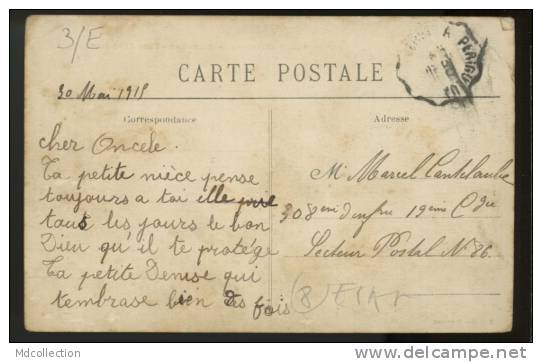 3/E
CARTE POSTALE
30 Mai 1915
Correspondance
Adresse
cher Oncele.
Ta petite nièce pense
toujours a toi elle prie
taus les jours le bon
Dieu qu il te protége
Ta petite Denise qui
tembrase bien des fois
Mr Marcel Cantelaube
308eme dinfrie 19eme Cgie
Secteur Postal N° 86.
(8)
MDcollection
http://www.delcampe.net